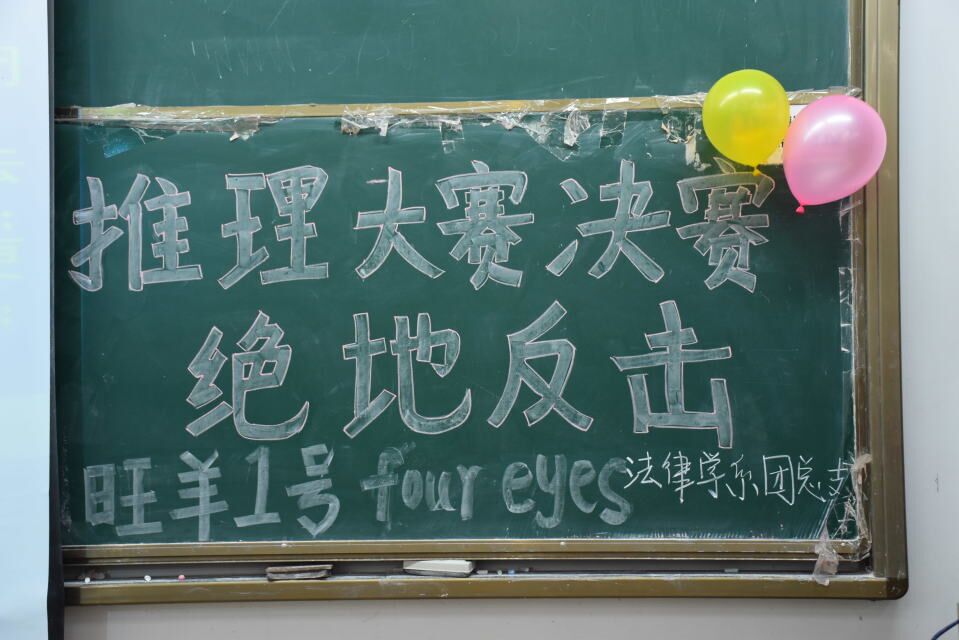 推理大赛决赛
绝地反击
旺羊1号 four eyes 法律学系团总支